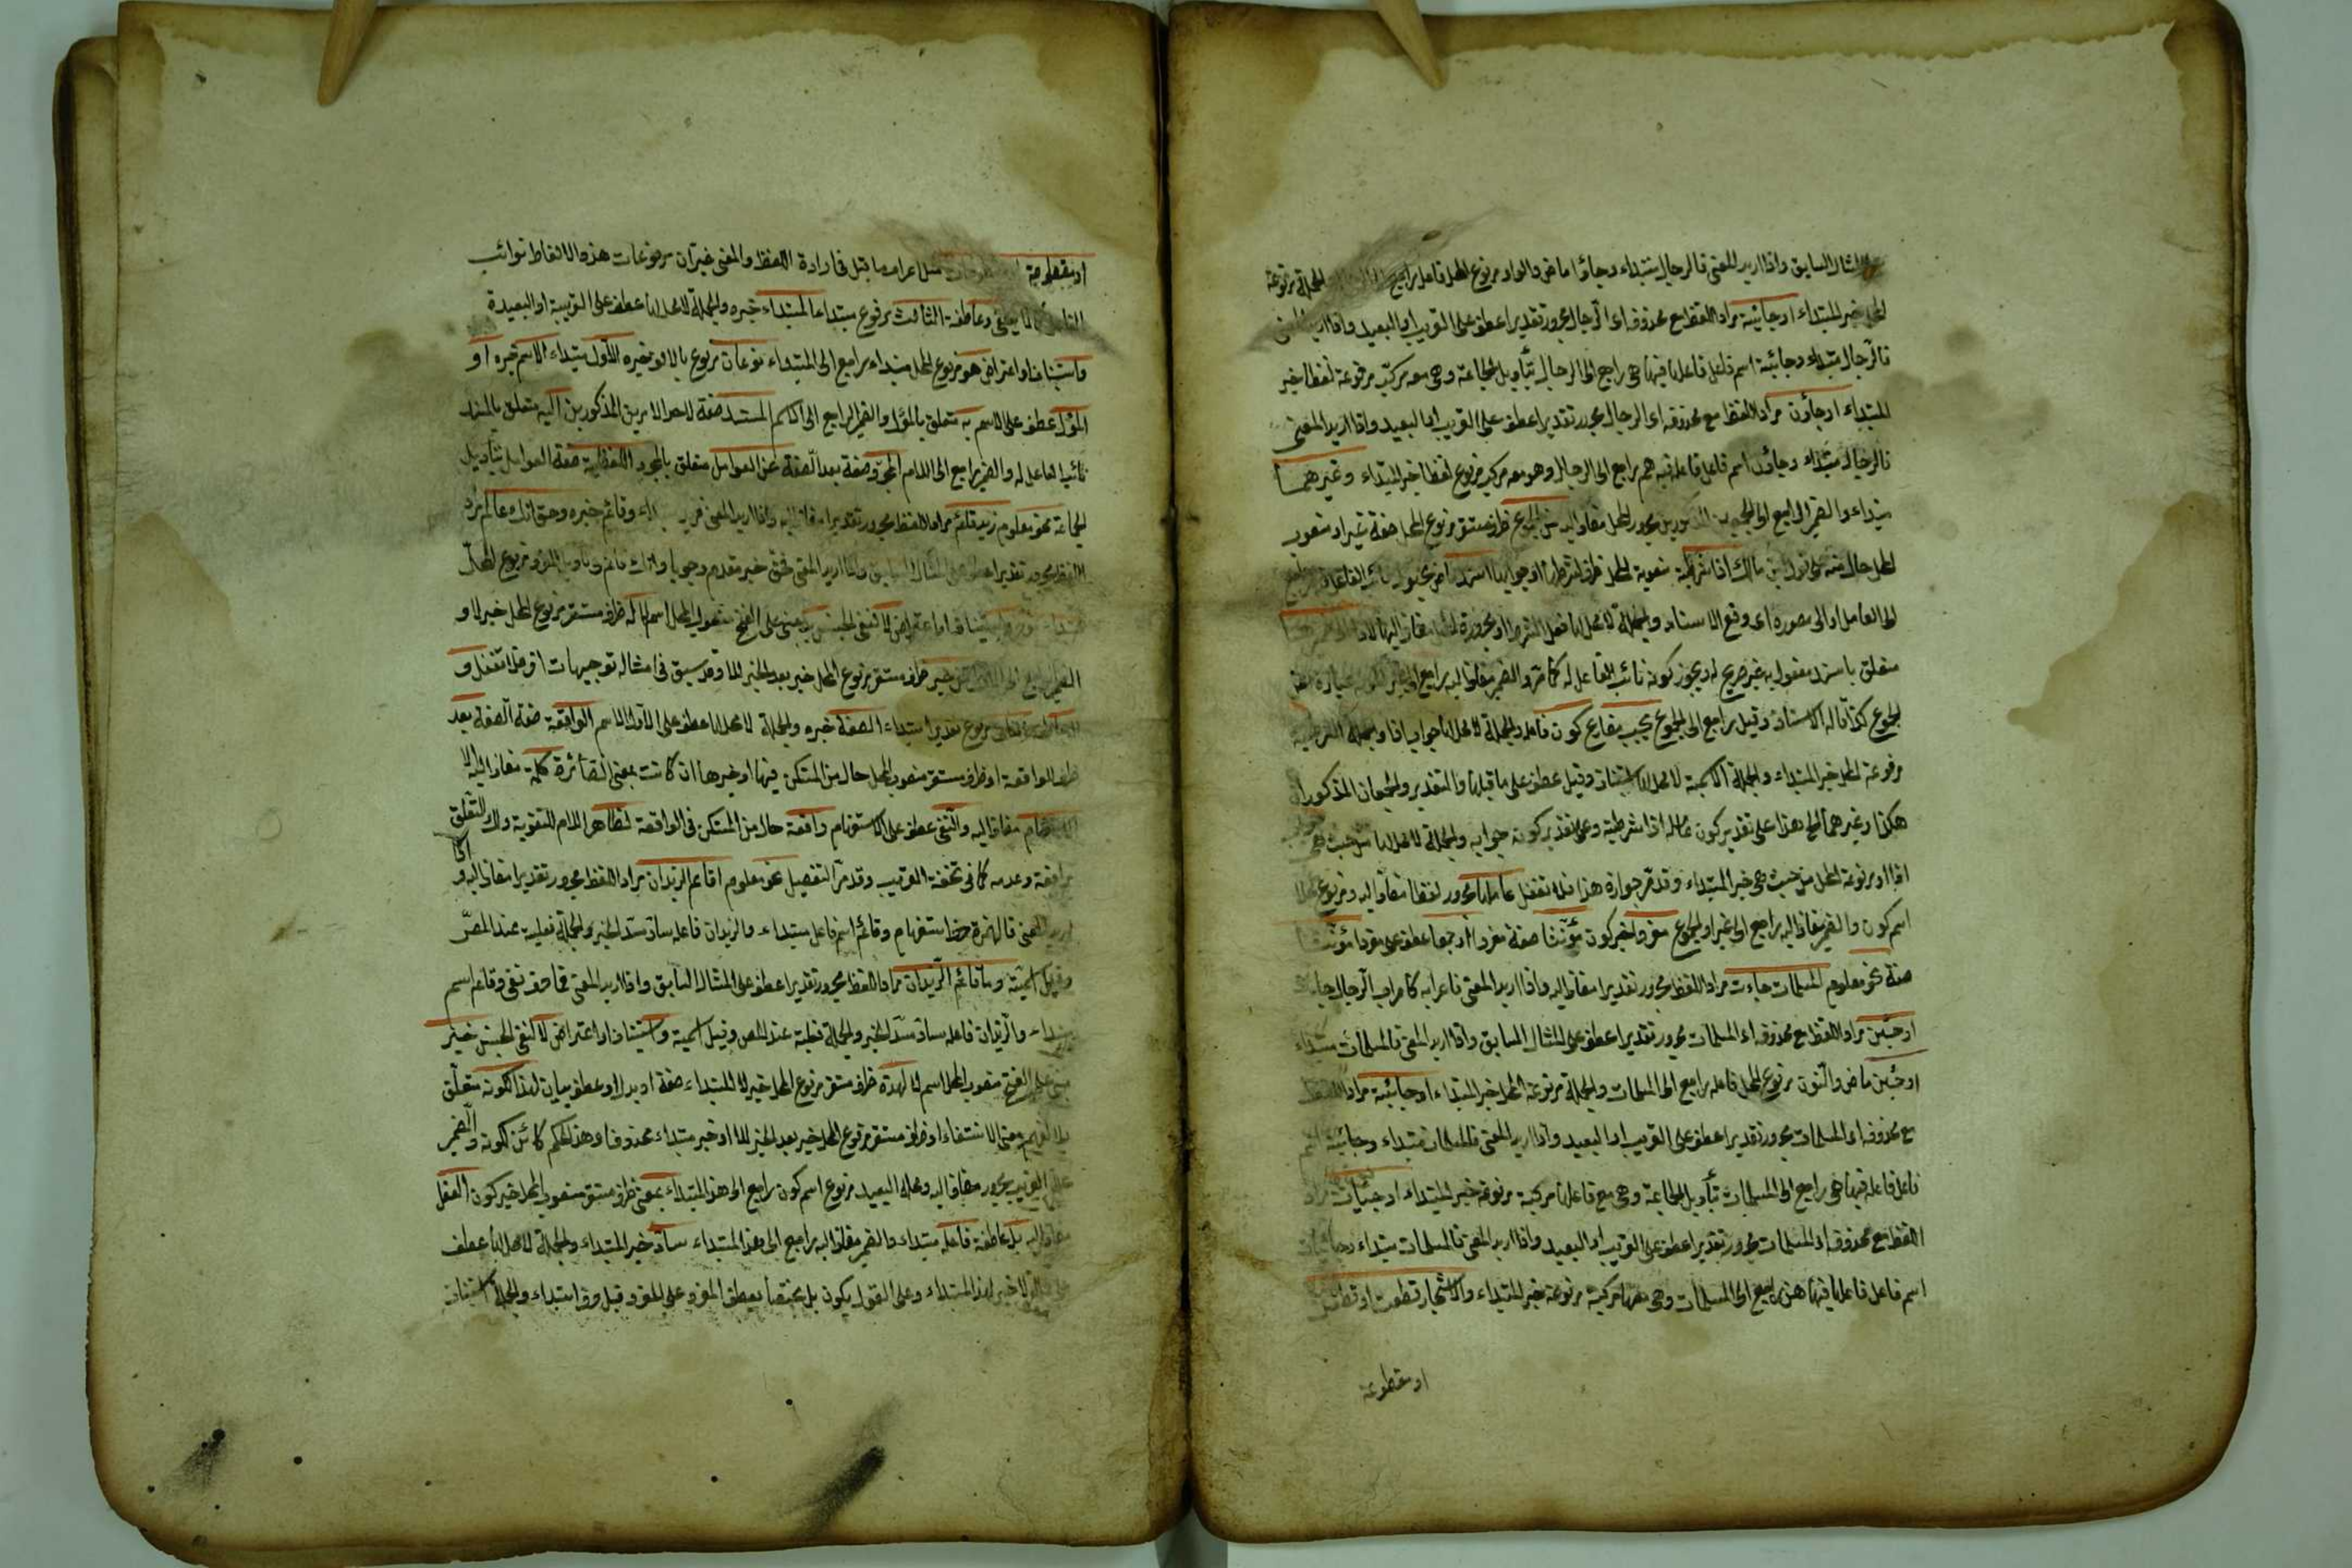 المثال السابق واذا اريد المعنى فالرجال مبتداء وجاؤا ماض والواو مرفوع المحل فاعله راجع الجملة مرفوعة
المحل خبر المبتداء او جائية مراد اللفظ مع محذوفه اى الرجال مجرور تقديرا عطف على القريب او البعيد واذا اريد المعنى
فالرجال مبتداء وجائية اسم فاعل فاعله فيها هى راجع الى الرجال بتأويل الجماعة وهى معه مركب مرفوعة لفظا خبر
المبتداء او جاؤن مراد اللفظ مع محذوفه اى الرجال مجرور تقديرا عطف على القريب او البعيد واذا اريد المعنى
فالرجال مبتداء وجاؤن اسم فاعل فاعله فيه هم راجع الى الرجال وهو معه مركب مرفوع لفظا خبر المبتداء وغيرهما
مبتداء والضمير الراجع الى مجرور المحل مضاف اليه من الجموع ظرف مستقر مرفوع المحل صفة غير او منصوب
المحل حال منه على قول ابن مالك اذا شرطية منصوبة المحل ظرف لشرطها او جوابها اسند ماض مجهول نائب الفاعل فيه راجع
الى العامل والى مصدره اى وقع الاسناد والجملة لا محل لها فعل الشرط او مجرورة المحل مضاف اليها لاذا الى ضميرها
متعلق باسند مفعول به غير صريح له ويجوز كونه نائب الفاعل له كما مر والضمير مضاف اليه راجع الى غير
الجموع كذا قاله الاستاذ وقيل راجع الى الجموع يجب مضارع كون فاعله والجملة لا محل لها جواب اذا والجملة الشرطية
مرفوعة المحل خبر المبتداء والجملة الاسمية لا محل لها استيناف وقيل عطف على ما قبلها والتقدير والجمعان المذكوران
هكذا وغيرهما الخ هذا على تقدير كون عامل اذا شرطية وعلى تقدير كونه جوابه والجملة لا محل لها من حيث هى جواب
اذا او مرفوعة المحل من حيث هى خبر المبتداء وقد مر جوازه هذا فلا تغفل عاملها مجرور لفظا مضاف اليه ومرفوع محلا
اسم كون والضمير مضاف اليه راجع الى غير او الجموع مفردا خبر كون مؤنثا صفة مفردا او جمعا عطف على مفردا مؤنثا
صفة نحو معلوم المسلمات جاءت مراد اللفظ مجرور تقديرا مضاف اليه واذا اريد المعنى فاعرابه كاعراب الرجال جاءت
او جئن مراد اللفظ مع محذوفه اى المسلمات مجرور تقديرا عطف على المثال السابق واذا اريد المعنى فالمسلمات مبتداء
او جئن ماض والنون مرفوع المحل فاعله راجع الى المسلمات والجملة مرفوعة المحل خبر المبتداء او جائية مراد اللفظ
مع محذوفه اى المسلمات مجرور تقديرا عطف على القريب او البعيد واذا اريد المعنى فالمسلمات مبتداء وجائية اسم
فاعل فاعله فيها هى راجع الى المسلمات بتأويل الجماعة وهى مع فاعلها مركبة مرفوعة خبر المبتداء او جائيات مراد
اللفظ مع محذوفه اى المسلمات مجرور تقديرا عطف على القريب او البعيد واذا اريد المعنى فالمسلمات مبتداء وجائيات
اسم فاعل فاعلها فيها هن راجع الى المسلمات وهى معها مركبة مرفوعة خبر المبتداء والاشجار قطعت او قطعن
او مقطوعة
او مقطوعة مثل اعراب ما قبل فى ارادة اللفظ والمعنى غير ان مرفوعات هذه الالفاظ نوائب
وعاطفة الثالث مرفوع مبتداء المبتداء خبره والجملة لا محل لها عطف على القريبة او البعيدة
واستيناف او اعتراض هو مرفوع المحل مبتداء راجع الى المبتداء نوعان مرفوع بالالف خبره الاول مبتداء الاسم خبره او
المؤل عطف على الاسم به متعلق بالمؤل والضمير الراجع الى الاسم المسند صفة لاحد الامرين المذكورين اليه متعلق بالمسند
نائب الفاعل له والضمير راجع الى اللام المجرد صفة بعد الصفة عن العوامل متعلق بالمجرد اللفظية صفة العوامل بتأويل
الجماعة نحو معلوم زيد قائم مراد اللفظ مجرور تقديرا مضاف اليه واذا اريد المعنى فزيد مبتداء وقائم خبره وحق انك عالم مراد
اللفظ مجرور تقديرا عطف على المثال السابق واذا اريد المعنى فحق خبر مقدم وجوبا وانك عالم فى تأويل المفرد مرفوع المحل
مبتداء استيناف او اعتراض لا لنفى الجنس مبنى على الفتح منصوب المحل اسم لا له ظرف مستقر مرفوع المحل خبر لا و
الضمير راجع الى خبر ظرف مستقر مرفوع المحل خبر بعد الخبر للا وقد سبق فى امثاله توجيهات اخر فلا تغفل و
مرفوع تقديرا مبتداء الصفة خبره والجملة لا محل لها عطف على الاول الاسم الواقعة صفة الصفة بعد
ظرف الواقعة او ظرف مستقر منصوب المحل حال من المستكن فيها او خبرها ان كانت بمعنى الصائرة كلمة مضاف اليه
الاستفهام مضاف اليه والنفى عطف على الاستفهام رافعة حال من المستكن فى الواقعة لظاهر اللام للتقوية ولك التعلق
برافعة وعدمه كما فى تحفة القريب وقد مر التفصيل نحو معلوم اقائم الزيدان مراد اللفظ مجرور تقديرا مضاف اليه و
اذا اريد المعنى فالهمزة حرف استفهام وقائم اسم فاعل مبتداء والزيدان فاعله ساد مسد الخبر والجملة فعلية عند المص
وقيل اسمية وما قائم الزيدان مراد اللفظ مجرور تقديرا عطف على المثال السابق واذا اريد المعنى فما حرف نفى وقائم اسم
مبتداء والزيدان فاعله ساد مسد الخبر والجملة فعلية عند المص وقيل اسمية واستيناف او اعتراض لا لنفى الجنس خبر
مبنى على الفتح منصوب المحل اسم لا لهذا ظرف مستقر مرفوع المحل خبر لا المبتداء صفة او بدل او عطف بيان لهذا لكونه متعلق
معنى الانتفاء او ظرف مستقر مرفوع المحل خبر بعد الخبر للا او خبر مبتداء محذوف اى وهذا الحكم كائن لكونه والضمير
مجرور مضاف اليه ومحله البعيد مرفوع اسم كون راجع الى هذا المبتداء بمعنى ظرف مستقر منصوب المحل خبر كون الفعل
مضاف اليه بل عاطفة فاعله مبتداء والضمير مضاف اليه راجع الى هذا المبتداء ساد خبر المبتداء والجملة لا محل لها عطف
لا خبر لهذا المبتداء وعلى القول بكون بل مختصا بعطف المفرد على المفرد قيل حرف ابتداء والجملة استيناف